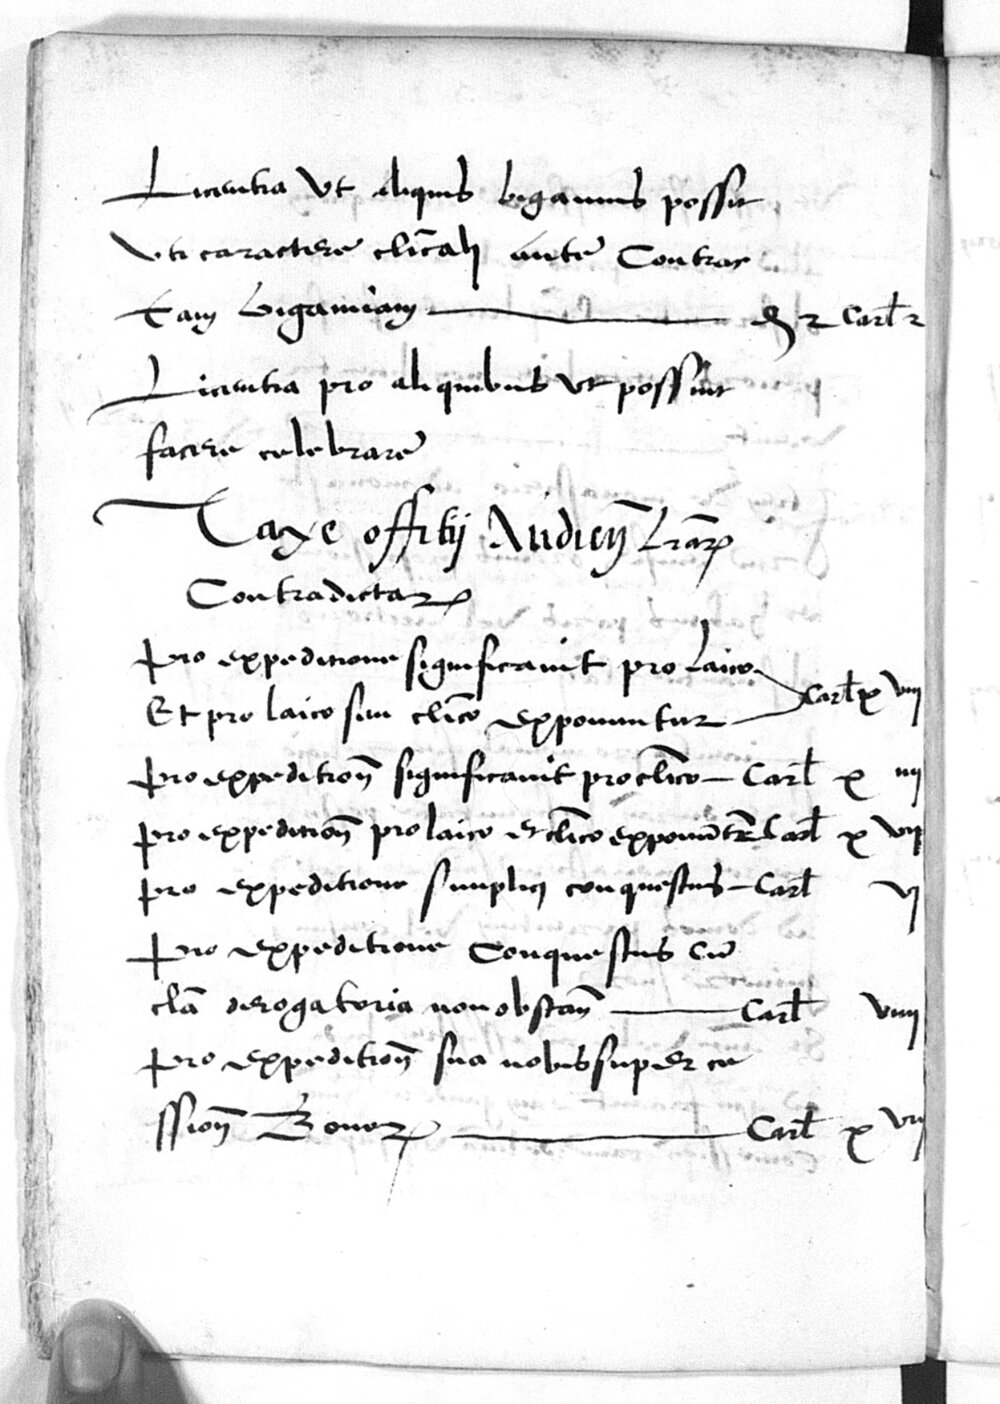 Licentia Vt aliquis bigamus possit
vti caractere clicali ante Contrac
tam bigamiam — 2 Carl 2
Licentia pro aliquibus vt possint
facere celebrare
Taxe offitij Audien Lrar
Contradictar
pro expeditione significauit pro laico
Et pro laico siue clico exponuntur — Carl x viij
pro expedition significauit pro clico — Carl x iiij
pro expedition pro laico et clico exponutr Carl x vij
pro expeditione simplicis conquestus — Carl vj
pro expeditione Conquestus cu
cla derogatoria non obstan — Carl viiij
pro expedition sua nobis super ce
ssion Bonor — Carl x vij